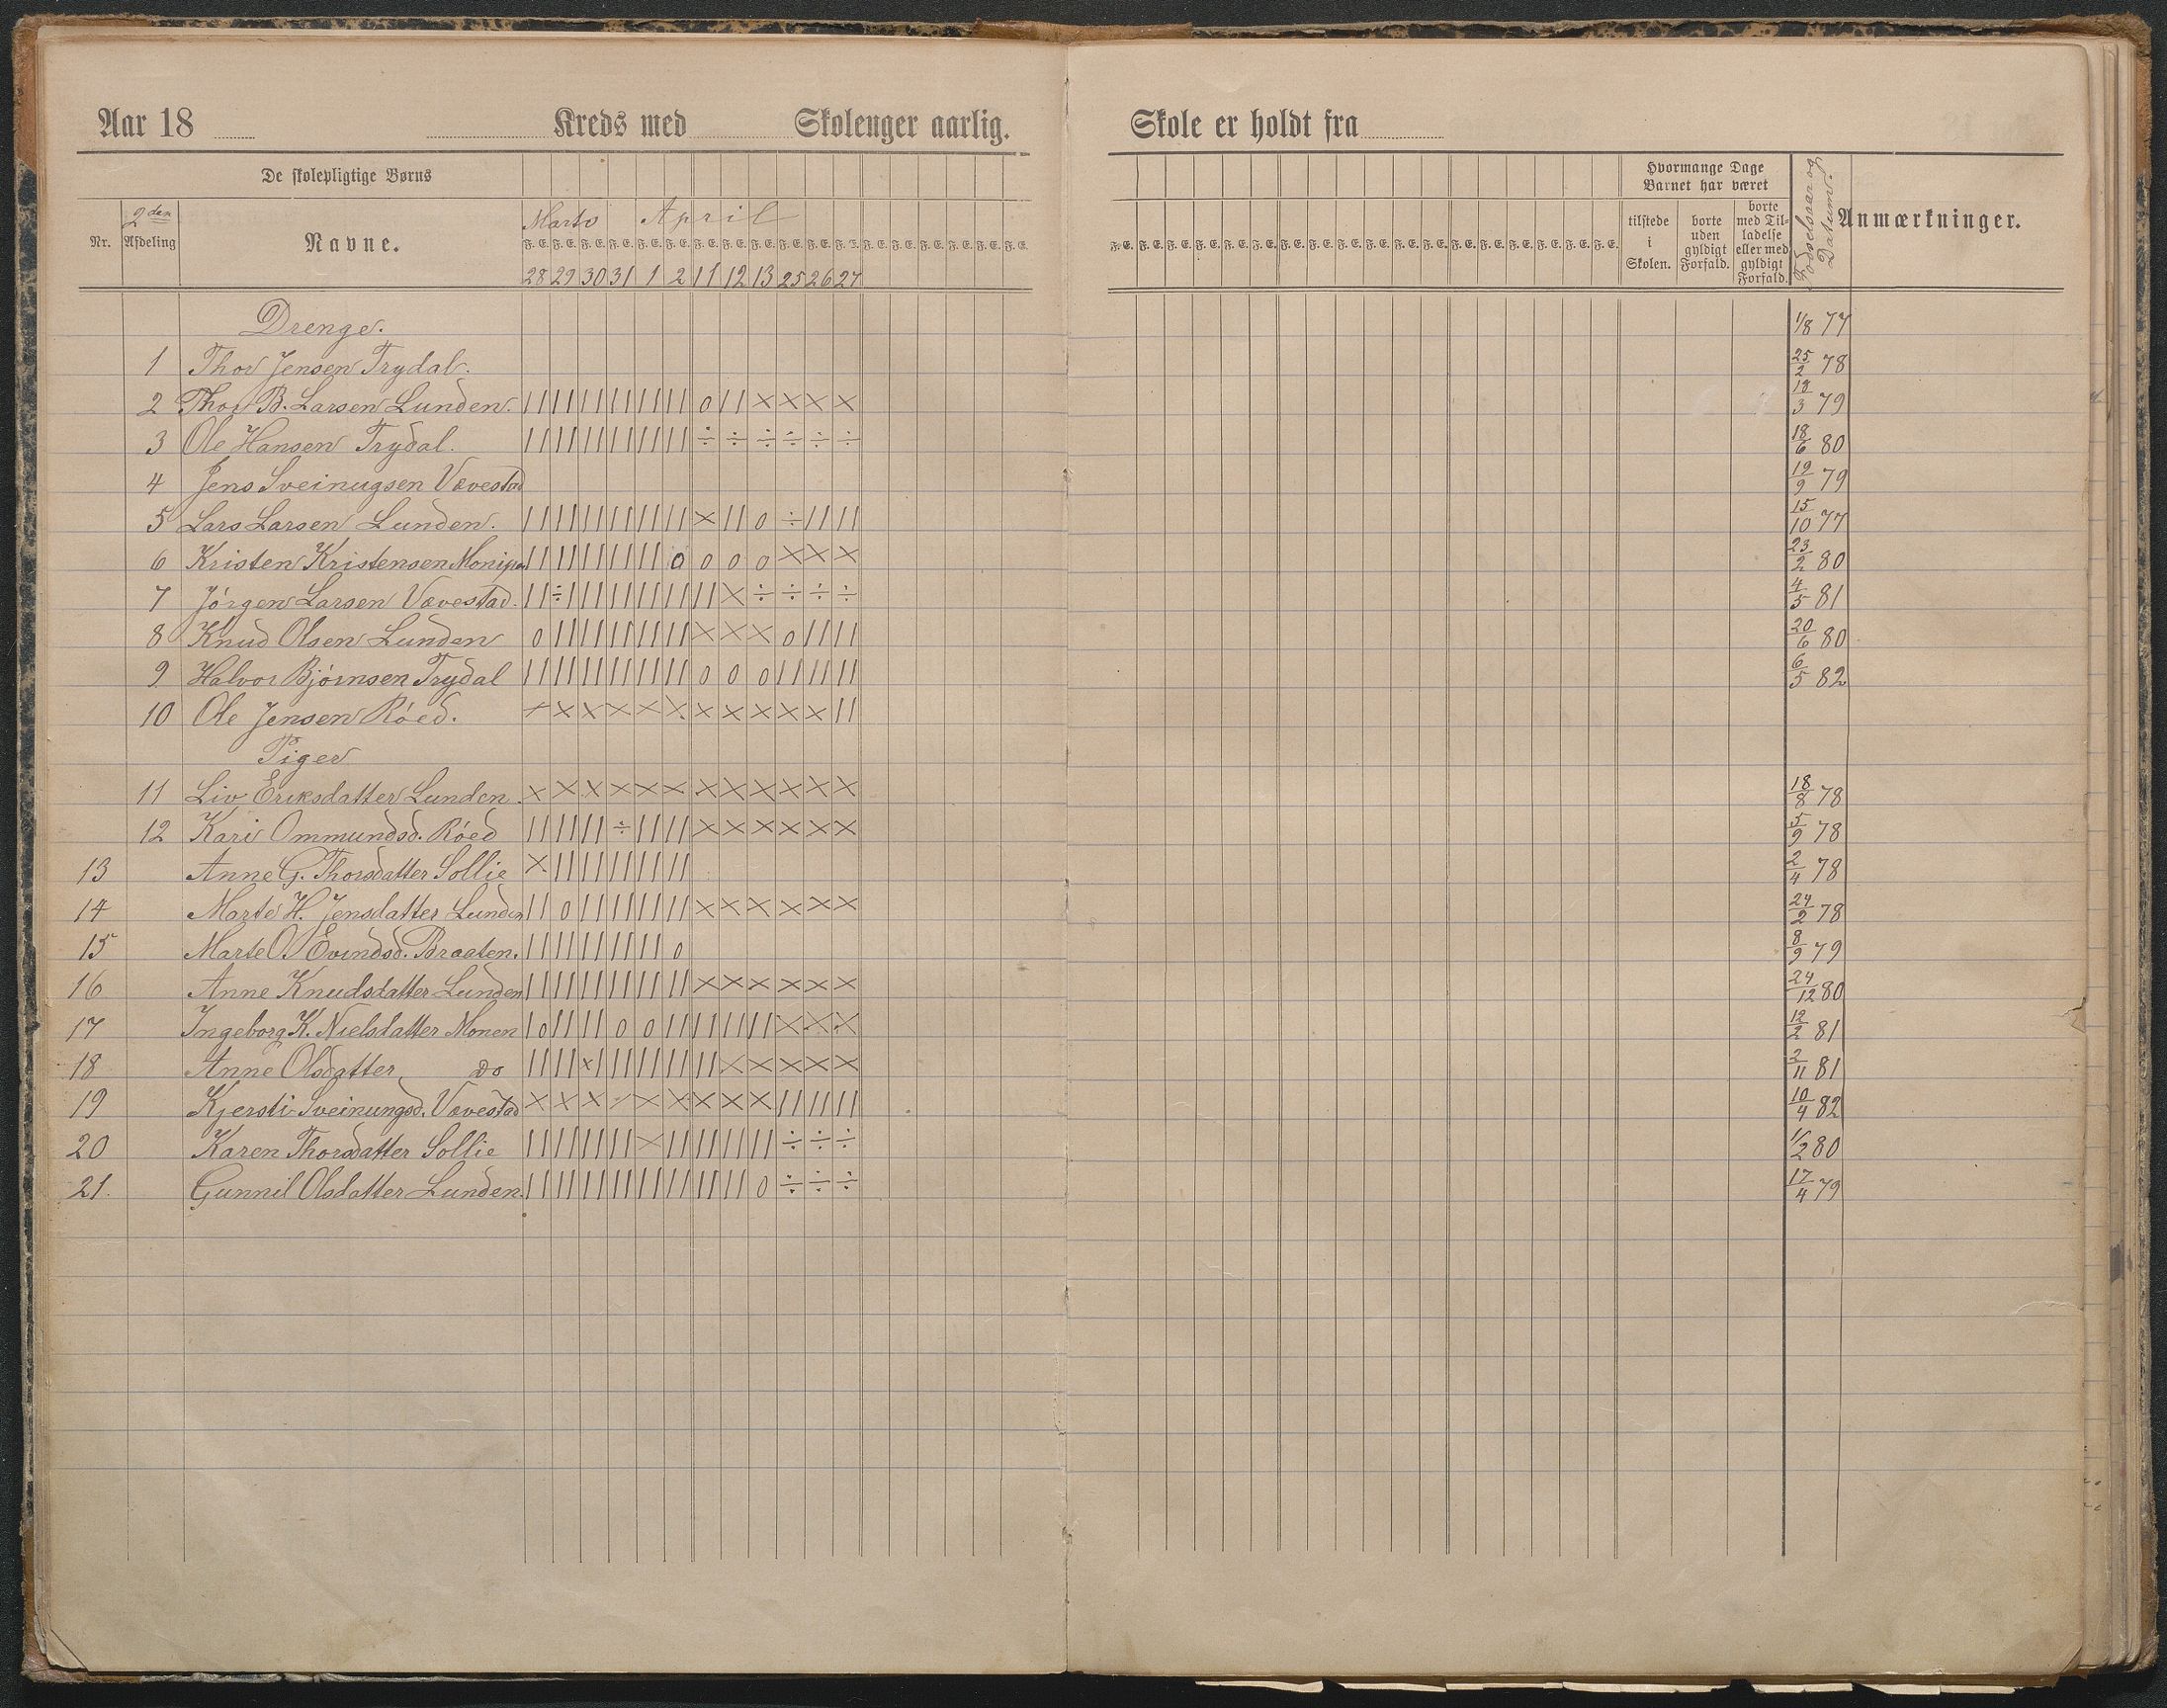 Aar 18 Kreds med Skolenger aarlig. Skole er holdt fra
De skolepligtige Børns
Hvormange Dage Barnet har været
Nr. 2den Afdeling Navne. Marts April
F. E. F. E. F. E. F. E. F. E. F. E. F. E. F. E. F. E. F. E. F. E. F. E. F. E. F. E. F. E. F. E. F. E. F. E.
28 29 30 31 1 2 11 12 13 25 26 27
F. E. F. E. F. E. F. E. F. E. F. E. F. E. F. E. F. E. F. E. F. E. F. E. F. E. F. E. F. E. F. E. F. E. F. E.
tilstede i Skolen.
borte uden gyldigt Forfald.
borte med Tilladelse eller med gyldigt Forfald.
Fødselsaar og Datum.
Anmærkninger.
Drenge. 1/8 77
1 Thor Jensen Trydal. 25/2 78
2 Thor B. Larsen Lunden. | | | | | | | | | | | | o | | × × × × /3 79
3 Ole Hansen Trydal. | | | | | | | | | | | | ÷ ÷ ÷ ÷ ÷ ÷ 18/6 80
4 Jens Sveinugsen Vævestad 19/9 79
5 Lars Larsen Lunden. | | | | | | | | | | | | × | | o ÷ | | | | 15/10 77
6 Kristen Kristensen | | | | | | | | | | o o o o × × × 23/2 80
7 Jörgen Larsen Vævestad. | | ÷ | | | | | | | | | | × ÷ ÷ ÷ ÷ 4/5 81
8 Knud Olsen Lunden o | | | | | | | | | | × × × o | | | | 20/6 80
9 Halvor Björnsen Trydal | | | | | | | | | | | | o o o | | | | | | 6/5 82
10 Ole Jensen Röed. × × × × × × × × × × × | |
Piger
11 Liv Eriksdatter Lunden. × × × × × × × × × × × × 18/8 78
12 Kari Ommundsd. Röed | | | | | | ÷ | | | | × × × × × × 5/9 78
13 Anne G. Thorsdatter Sollie × | | | | | | | | | | 2/4 78
14 Marte H. Jensdatter Lunden | | o | | | | | | | | × × × × × × 24/2 78
15 Marte O. Evindsd. Braaten. | | | | | | | | | | o 8/9 79
16 Anne Knudsdatter Lunden | | | | | | | | | | | | × × × × × × 24/12 80
17 Ingeborg K. Nielsdatter Monen | o | | | | o o | | | | | | | | × × × 12/2 81
18 Anne Olsdatter Do | | | | × | | | | | | | | | × × × × × 2/11 81
19 Kjersti Sveinungsd. Vævestad × × × × × × × × × | | | | | | 10/4 82
20 Karen Thorsdatter Sollie | | | | | | | | × | | | | | | | | ÷ ÷ ÷ 1/2 80
21. Gunnil Olsdatter Lunden. | | | | | | | | | | | | | | | | o ÷ ÷ ÷ 17/4 79